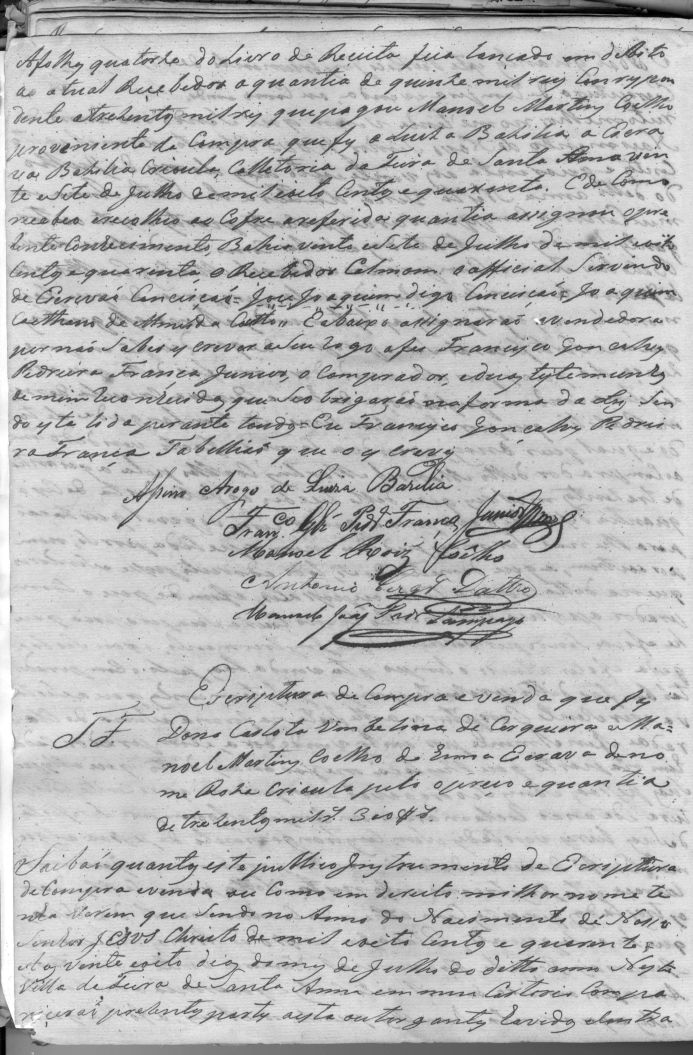 A folhas quatorze do Livro de Receita fica lançado em debito
ao actual Recebedor a quantia de quinze mil reis Correspon
dente a trezentos mil reis que pagou Manoel Martins Coelho
proveniente de Compra que fez a Luiza Basilia a Escra
va Basilia Crioula, Colletoria da Feira de Santa Anna vin
te e Sete de Julho de mil oito Centos e quarenta. E de Como
recebeo e recolheo ao Cofre a referida quantia assignou o pre
zente Conhecimento, Bahia vinte e Sete de Julho de mil oito
Centos e quarenta, o Recebedor Calmom, o official Servindo
de Escrivaõ = Jose Joaquim digo = Joaquim
Caethano de Almeida Couttos. E abaixo assignaraõ a vendedora
por naõ Saber escrever a Seu rogo a fes Francisco Gonçalves
Pedreira França Junior, o Comprador, e duas testemunhas
de mim reconhecidas, que Se obrigaraõ na forma da Ley Sen
do esta lida perante todos = Eu Francisco Gonçalves Pedrei
ra França Tabelliaõ que o escrevy
Assino Arogo de Luiza Bazilia
Franco Glz Pedra França Junior
Manoel Coelho
Antonio
Manoel Sampayo
Escriptura de Compra e venda que fez
Dona Carlota Umbelina de Cerqueira a Ma=
noel Martins Coelho de huma Escrava de no
me Roza Crioula pelo o preço e quantia
de trezentos mil rs. 300$rs
Saibaõ quantos este publico Instrumento de Escriptura
de Compra e venda ou Como em direito milhor nome te
nha virem que Sendo no Anno do Nascimento de Nosso
Senhor JESUS Christo de mil e oito Centos e quarenta,
Aos vinte e oito dias do mes de Julho do ditto anno Nesta
Villa de Feira de Santa Anna em meu Cartorio Compa
receraõ prezentes partes a esta outorgantes havidas e Contra